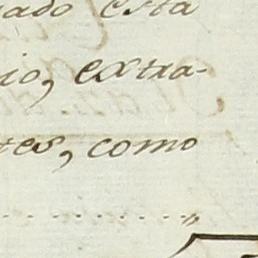 uado esta
io, extra-
tes, como
..............„